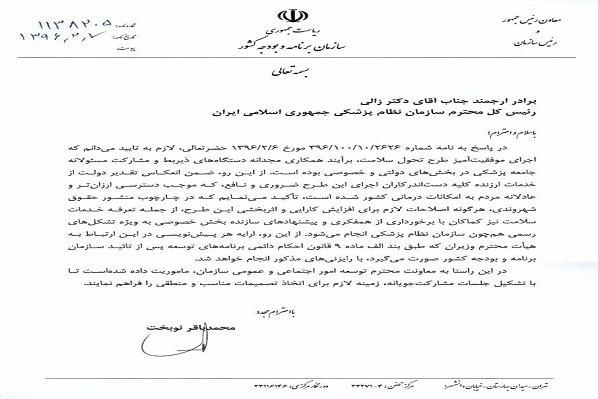 ریاست جمهوری
سازمان برنامه و بودجه کشور
معاون رئیس جمهور
و
رئیس سازمان
۱۱۳۸۲۰۵
۱۳۹۶,۲,۷
بسمه تعالی
برادر ارجمند جناب آقای دکتر زالی
رئیس کل محترم سازمان نظام پزشکی جمهوری اسلامی ایران
باسلام و احترام؛
در پاسخ به نامه شماره ۳۹۶/۱۰۰/۱۰/۲۶۲۶ مورخ ۱۳۹۶/۲/۶ حضرتعالی، لازم به تایید می‌دانم که
اجرای موفقیت‌آمیز طرح تحول سلامت، برآیند همکاری مجدانه دستگاه‌های ذیربط و مشارکت مسئولانه
جامعه پزشکی در بخش‌های دولتی و خصوصی بوده است. از این رو، ضمن انعکاس تقدیر دولت از
خدمات ارزنده کلیه دست‌اندرکاران اجرای این طرح ضروری و نافع، که موجب دسترسی ارزان‌تر و
عادلانه مردم به امکانات درمانی کشور شده است، تأکید می‌نمایم که در چارچوب منشور حقوق
شهروندی، هرگونه اصلاحات لازم برای افزایش کارایی و اثربخشی این طرح، از جمله تعرفه خدمات
سلامت نیز کماکان با برخورداری از همفکری و پیشنهادهای سازنده بخش خصوصی به ویژه تشکل‌های
رسمی هم‌چون سازمان نظام پزشکی انجام می‌شود. از این رو، ارایه هر پیش‌نویسی در این ارتباط به
هیأت محترم وزیران که طبق بند الف ماده ۹ قانون احکام دائمی برنامه‌های توسعه پس از تائید سازمان
برنامه و بودجه کشور صورت می‌گیرد، با رایزنی‌های مذکور انجام خواهد شد.
در این راستا به معاونت محترم توسعه امور اجتماعی و عمومی سازمان، ماموریت داده شده‌است تا
با تشکیل جلسات مشارکت‌جویانه، زمینه لازم برای اتخاذ تصمیمات مناسب و منطقی را فراهم نمایند.
با احترام مجدد
محمدباقر نوبخت
تهران-میدان بهارستان-خیابان دانشسرا مرکز تلفن: ۴-۳۳۲۷۱ دورنگار مرکزی: ۳۳۱۱۶۱۴۶